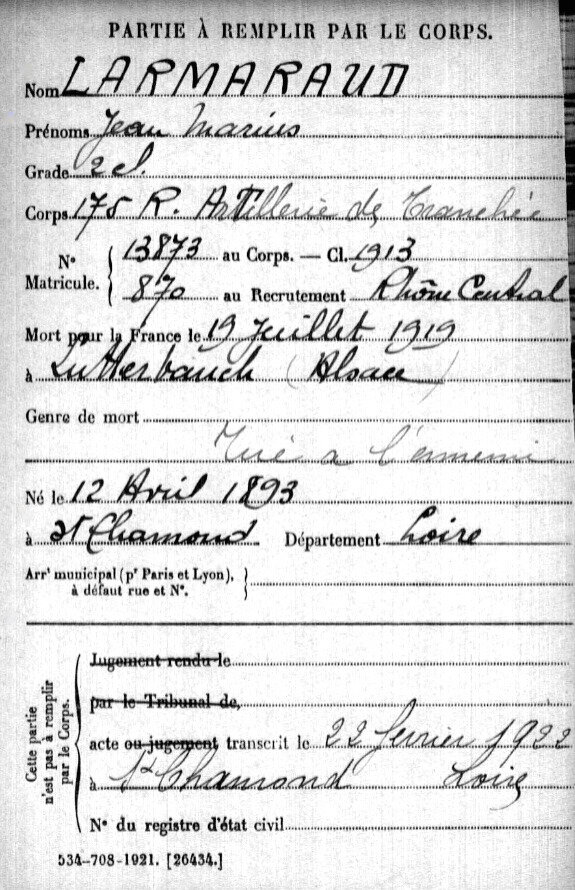 PARTIE À REMPLIR PAR LE CORPS.
Nom LARMARAUD
Prénoms Jean Marius
Grade 2 cl.
Corps 175 R. Artillerie de Tranchée
N° Matricule. { 13873 au Corps. — Cl. 1913
870 au Recrutement Rhône Central
Mort pour la France le 19 Juillet 1919
à Lutterbauch (Alsace)
Genre de mort
Tué a l'ennemi
Né le 12 Avril 1893
à St Chamond Département Loire
Arrt municipal (pr Paris et Lyon), à défaut rue et N°. }
Cette partie n'est pas à remplir par le Corps.
Jugement rendu le
par le Tribunal de
acte ou jugement transcrit le 22 février 1922
à St Chamond Loire
N° du registre d'état civil
534-708-1921. [26434.]